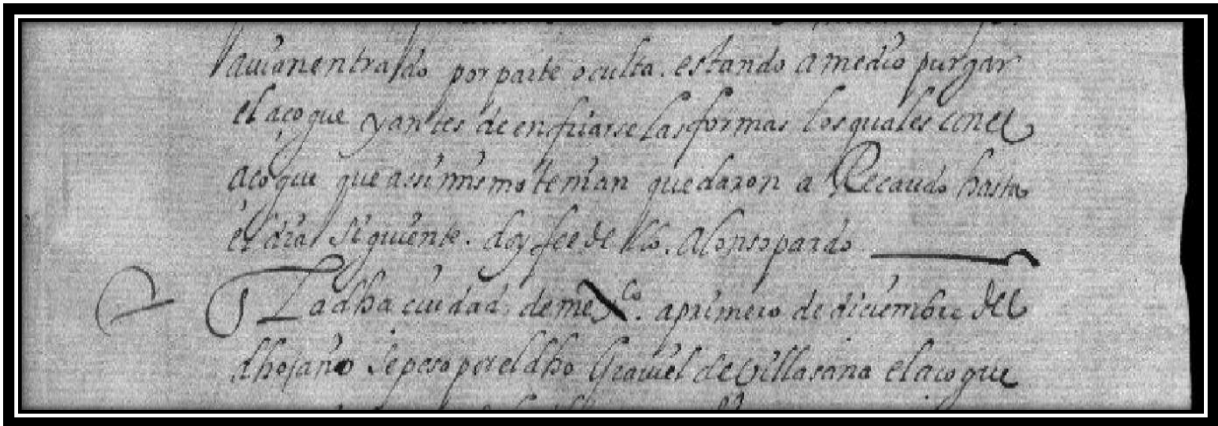 auian entrado por parte oculta. estando a medio purgar
el açogue y antes de enfriarse las formas los quales con el
açogue que assi mismo tenian quedaron a Recaudo hasta
el dia siguiente. doy fee de llo. Alonso pardo
En la dha ciudad de mexco. a primero de diciembre del
dho año se peso por el dho Grauiel de Villasana el açogue